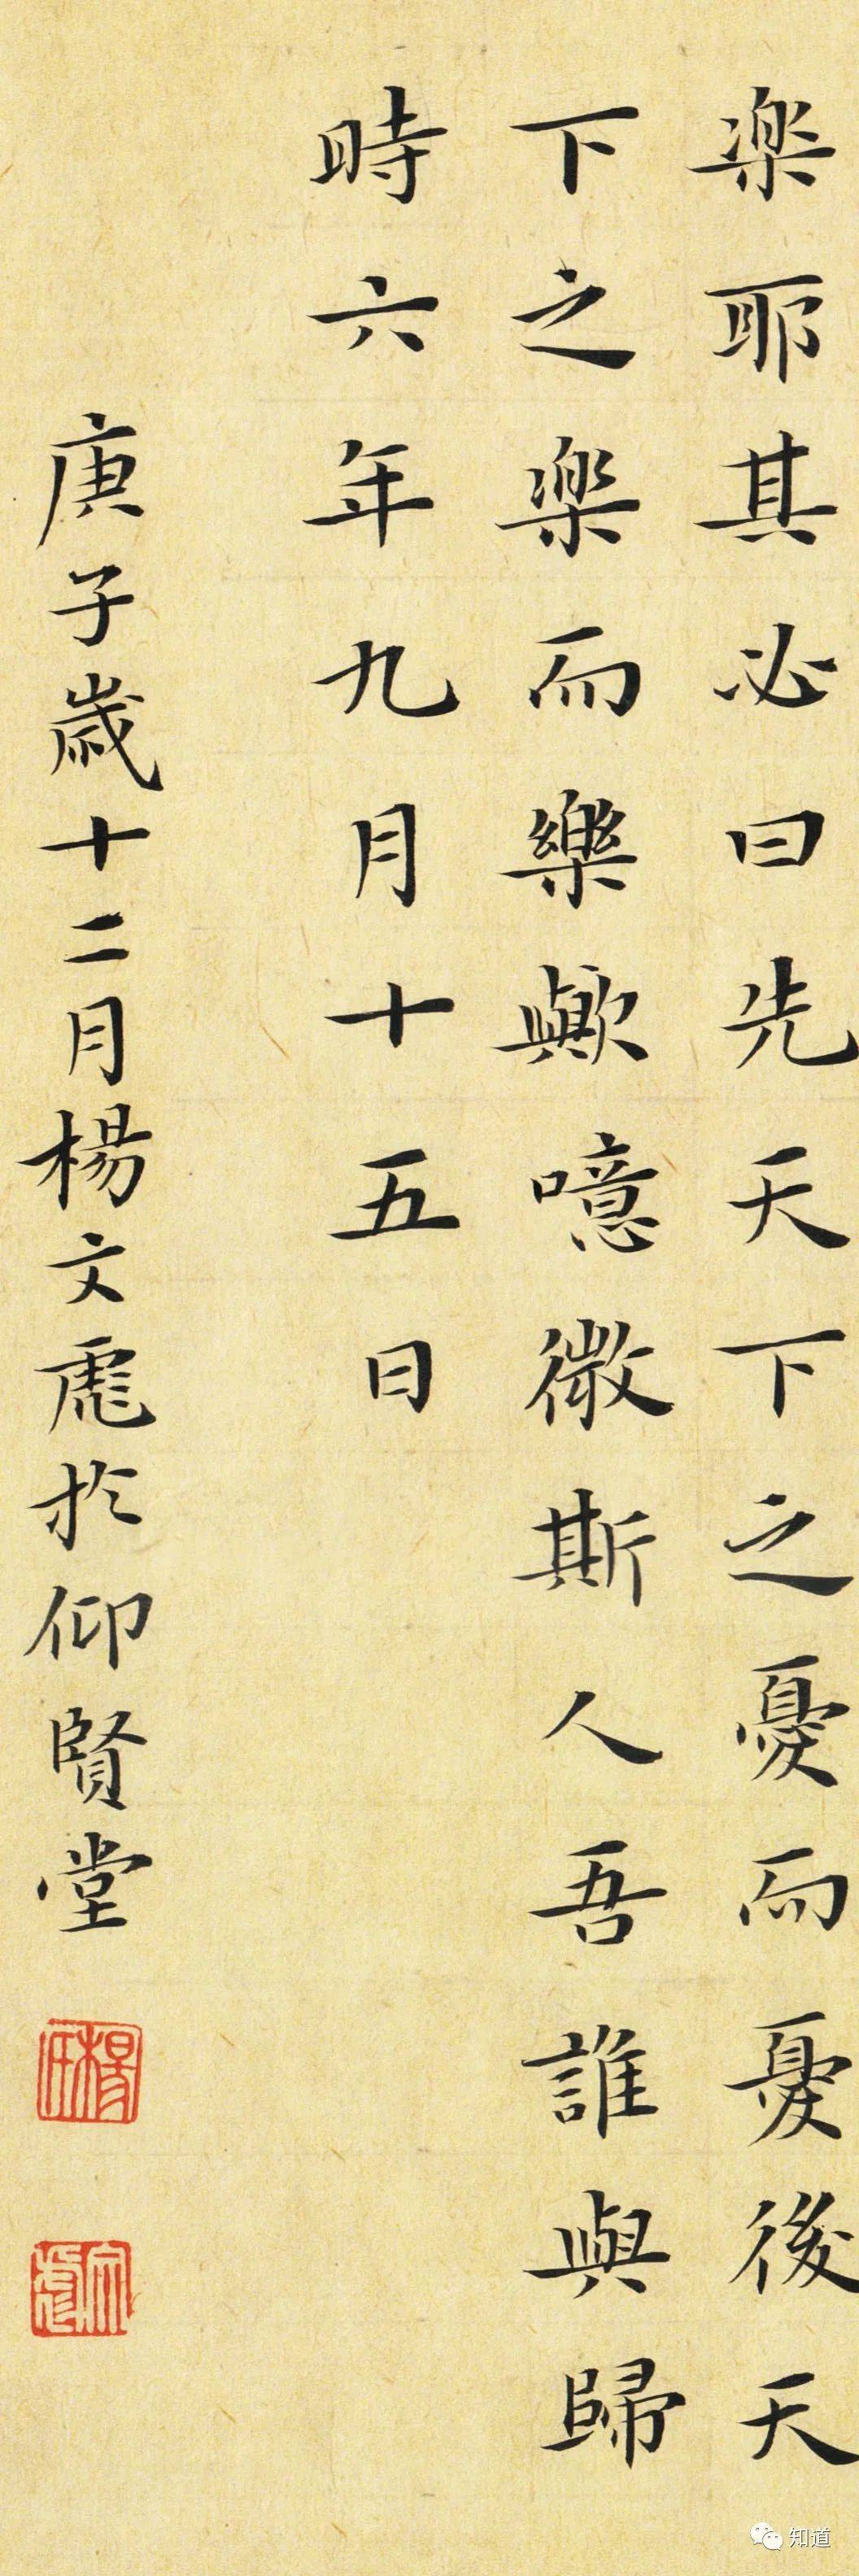 楽耶其必曰先天下之憂而憂後天
下之楽而樂歟噫微斯人吾誰與歸
時六年九月十五日
庚子歲十二月楊文彪於仰賢堂
知道